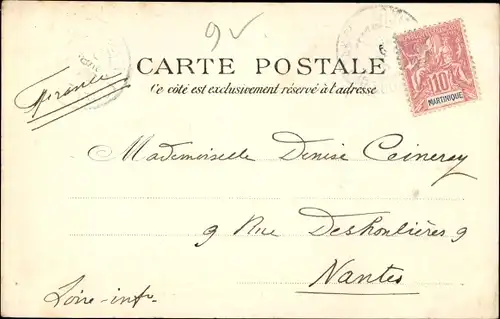 9v
CARTE POSTALE
Ce côté est exclusivement réservé à l'adresse
France
10
MARTINIQUE
Mademoiselle Denise Coinerey
9 Rue Deshoulières 9
Nantes
Loire-infre